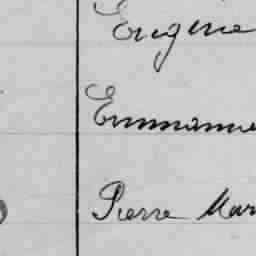 Eugène
Emmanue
Pierre Mar